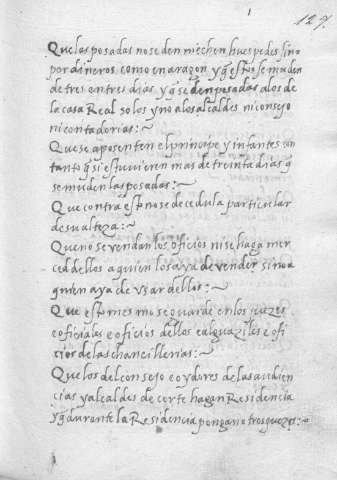 127
Que las posadas no se den ni echen huespedes sino
por dineros como en aragon y q̃ esto se muden
de tres en tres dias y q̃ se den posadas a los de
la casa Real solos y no a los alcaldes ni consejo
ni contadorias:~
Que se aposenten el principe y infantes con
tanto q̃ si estuvieren mas de treinta dias q̃
se muden las posadas:~
Que contra esto no se de cedula particular
de su alteza:~
Que no se vendan los oficios ni se haga mer
ced dellos a quien los aya de vender sino a
quien aya de usar dellos:~
Que esto mesmo se guarde en los juezes
e oficiales e oficios dellos e alguaziles e ofi
cios de las chancillerias:~
Que los del consejo e oydores de las audien
cias y alcaldes de corte hagan Residencia
y q̃ durante la Residencia pongan otros juezes:~